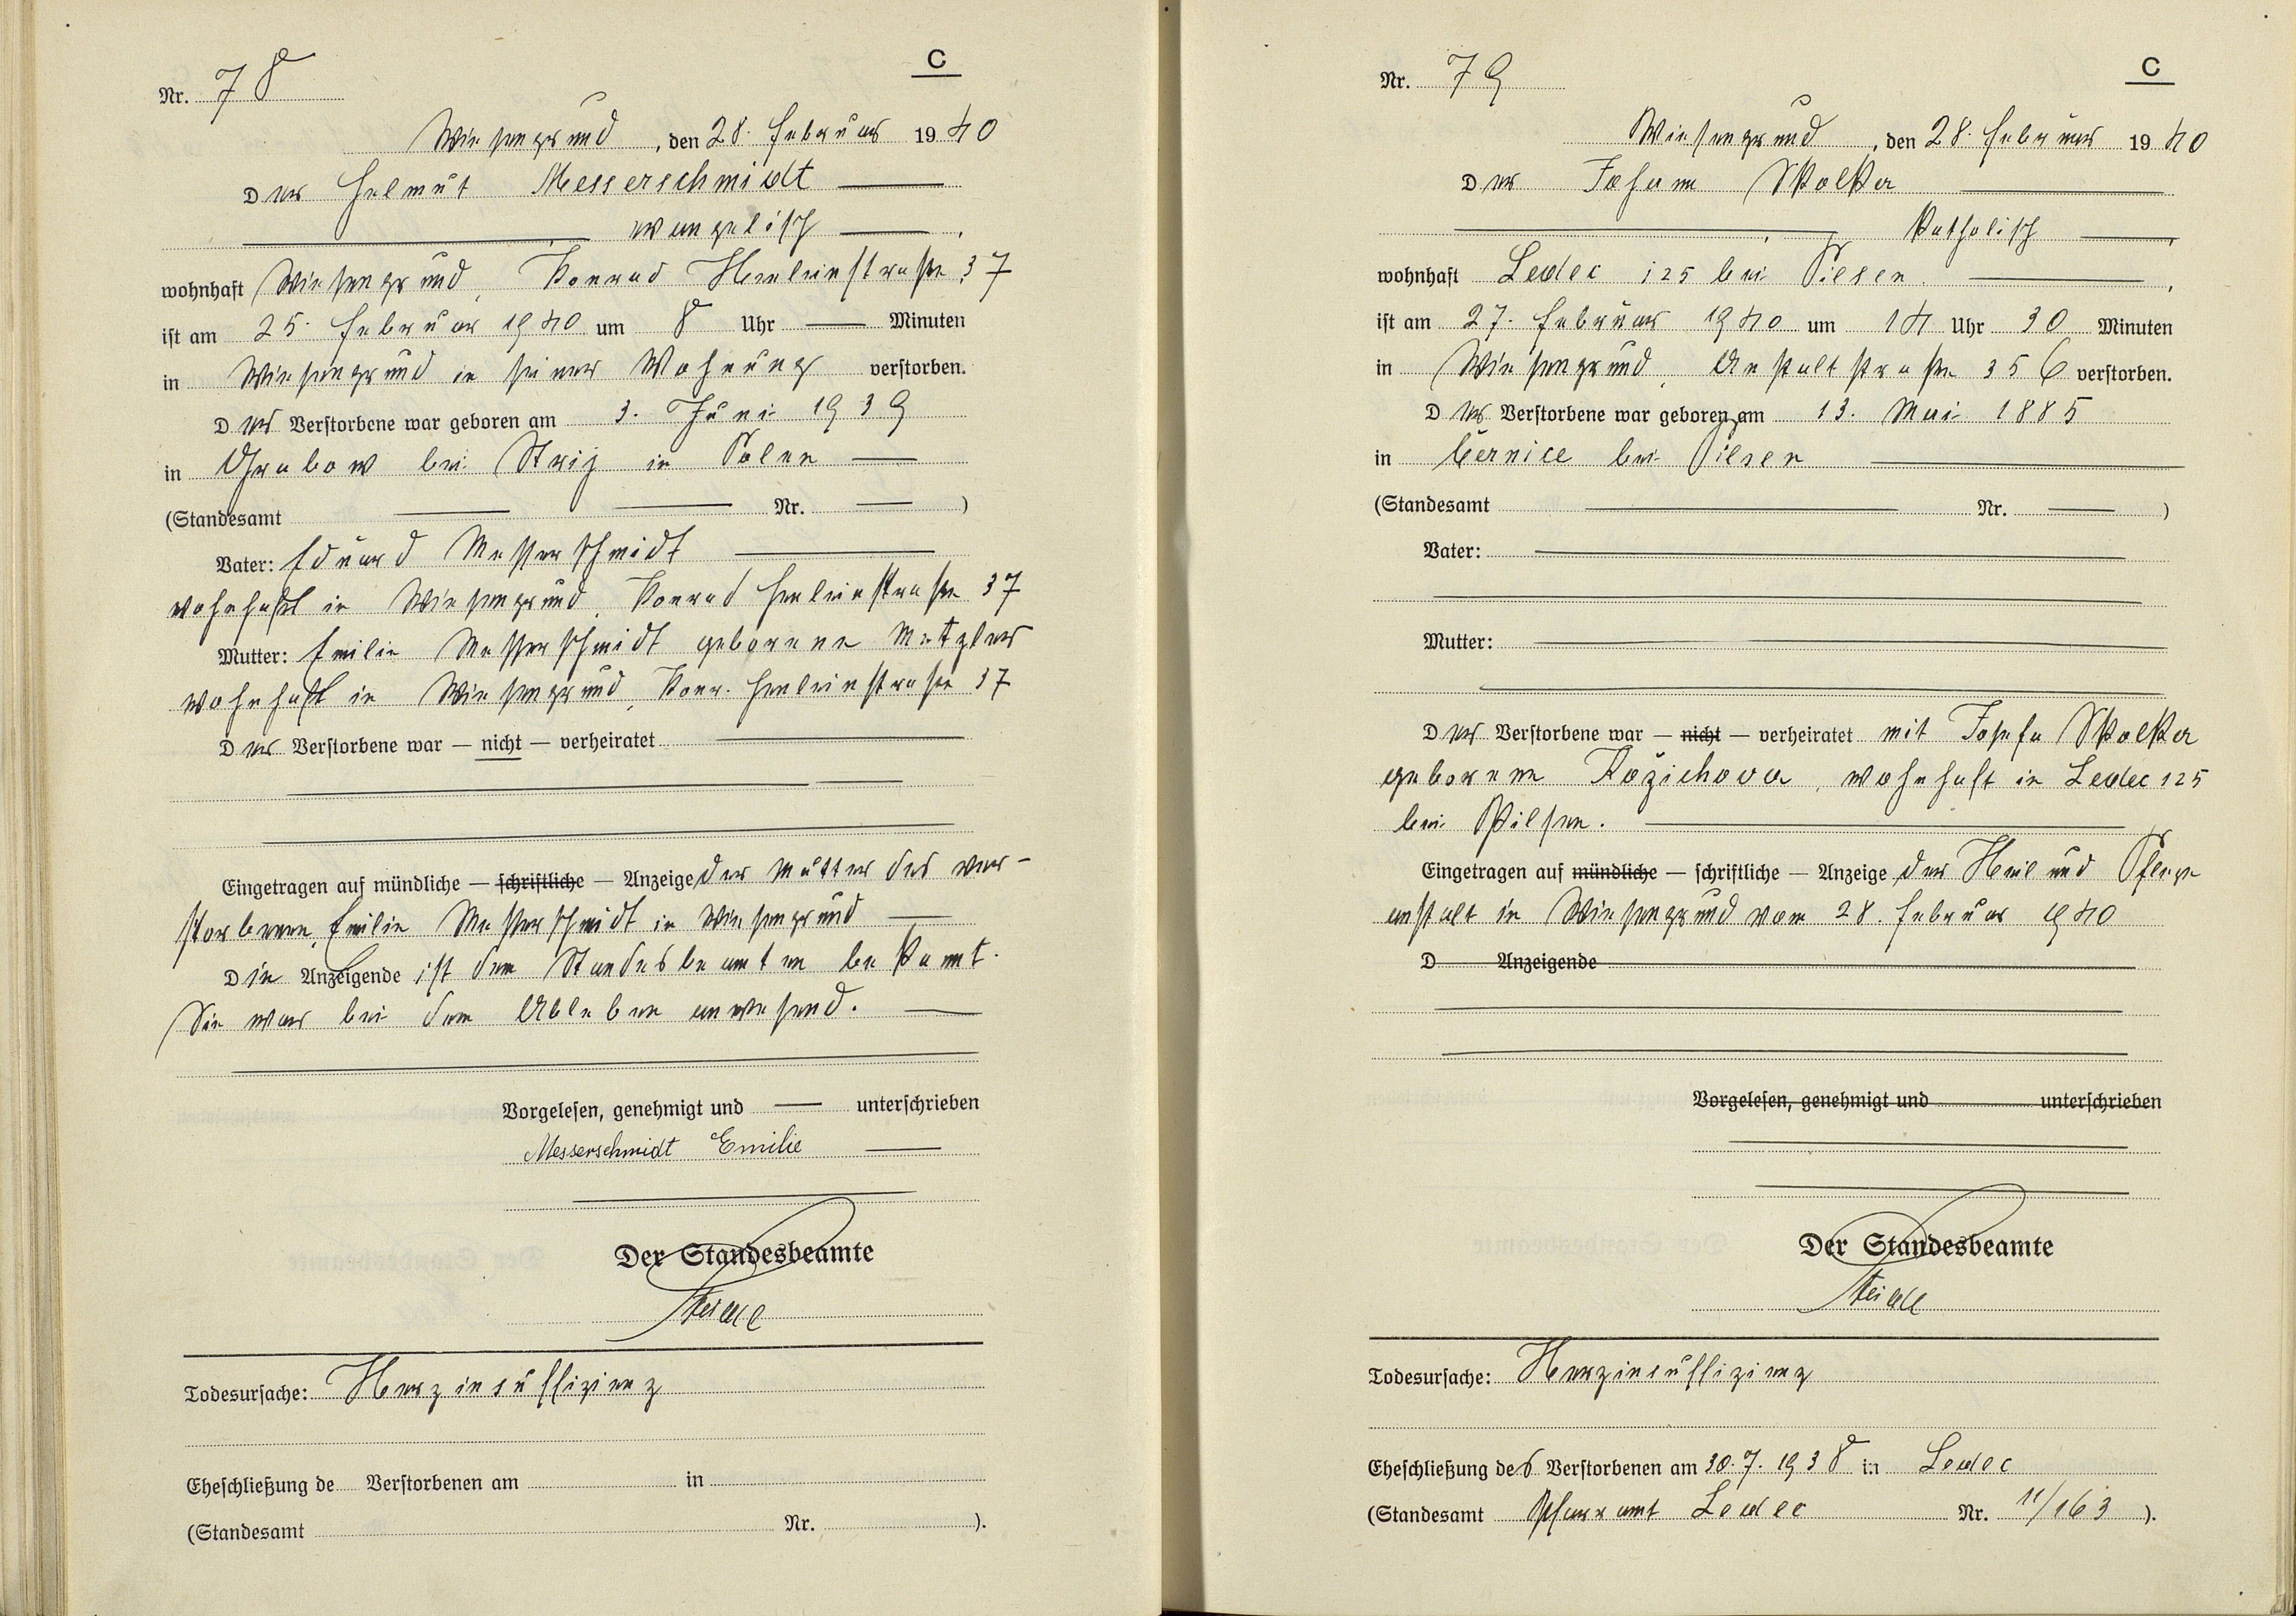 C
Nr. 78
Wiesengrund, den 28. Februar 1940
Der Helmut Messerschmidt
evangelisch
wohnhaft Wiesengrund, Konrad Henleinstraße 37
ist am 25. Februar 1940 um 8 Uhr Minuten
in Wiesengrund in seiner Wohnung verstorben.
Der Verstorbene war geboren am 3. Juni 1939
in Grabow bei Strij in Polen
(Standesamt Nr. )
Vater: Eduard Messerschmidt
wohnhaft in Wiesengrund, Konrad Henleinstraße 37
Mutter: Emilie Messerschmidt geborene Metzler
wohnhaft in Wiesengrund, Konr. Henleinstraße 37
Der Verstorbene war — nicht — verheiratet
Eingetragen auf mündliche — schriftliche — Anzeige der Mutter des ver-
storbenen, Emilie Messerschmidt in Wiesengrund
Die Anzeigende ist dem Standesbeamten bekannt.
Sie war bei dem Ableben anwesend.
Vorgelesen, genehmigt und unterschrieben
Messerschmidt Emilie
Der Standesbeamte
Todesursache: Herzinsuffizienz
Eheschließung de Verstorbenen am in
(Standesamt Nr. ).
C
Nr. 79
Wiesengrund, den 28. Februar 1940
Der Johann Skolka
katholisch
wohnhaft Ledec 125 bei Pilsen.
ist am 27. Februar 1940 um 14 Uhr 30 Minuten
in Wiesengrund, Anstaltstraße 356 verstorben.
Der Verstorbene war geboren am 13. Mai 1885
in Černice bei Pilsen
(Standesamt Nr. )
Vater:
Mutter:
Der Verstorbene war — nicht — verheiratet mit Josefa Skolka
geborene Rožichova, wohnhaft in Ledec 125
bei Pilsen.
Eingetragen auf mündliche — schriftliche — Anzeige der Heil und Pflege
anstalt in Wiesengrund vom 28. Februar 1940
D Anzeigende
Vorgelesen, genehmigt und unterschrieben
Der Standesbeamte
Todesursache: Herzinsuffizienz
Eheschließung des Verstorbenen am 30.7.1938 in Ledec
(Standesamt Pfarramt Ledec Nr. 11/163 ).